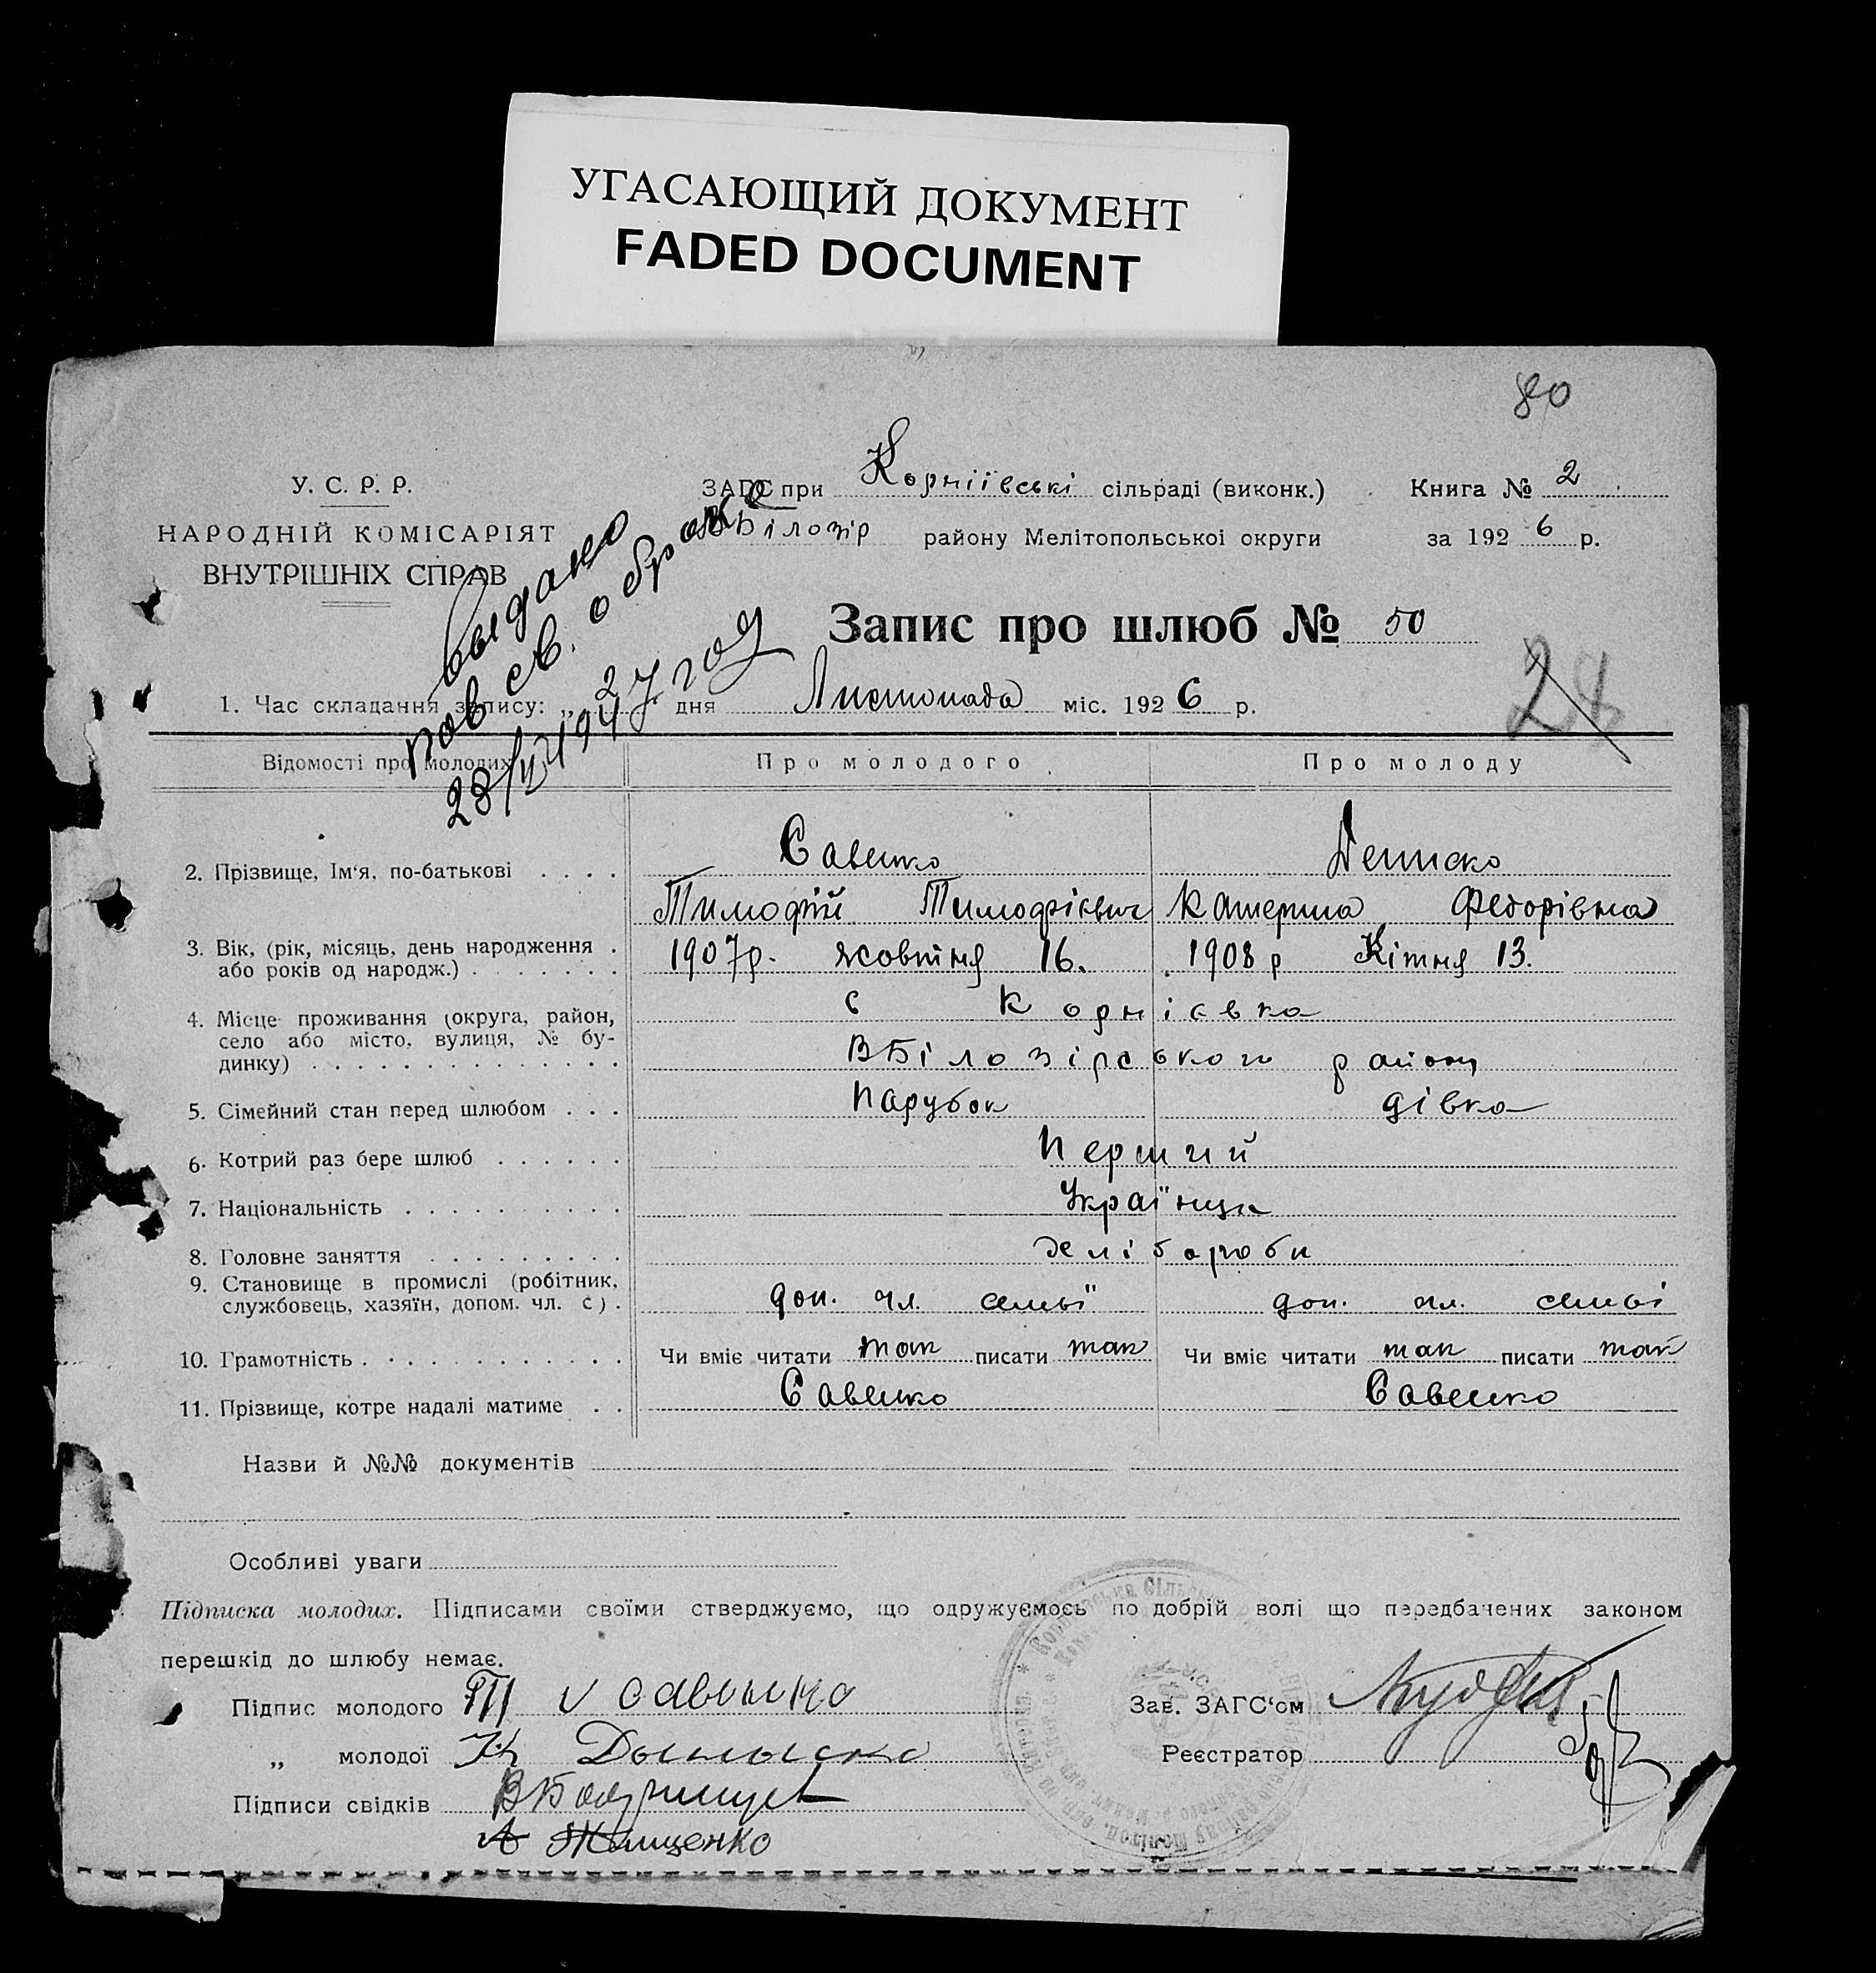 УГАСАЮЩИЙ ДОКУМЕНТ
FADED DOCUMENT
80
У. С. Р. Р.
НАРОДНІЙ КОМІСАРІЯТ
ВНУТРІШНІХ СПРАВ
ЗАГС при Корніївські сільраді (виконк.) Книга № 2
ВБілозір району Мелітопольськоі округи за 1926 р.
выдано
пов св. о браке
28/ 1947 год
Запис про шлюб № 50
28
1. Час складання запису: „ 27 дня Листопада міс. 1926 р.
Відомості про молодих Про молодого Про молоду
2. Прізвище, Ім'я, по-батькові . . . . Савенко Дениско
Тимофій Тимофієвич Катерина Федорівна
3. Вік, (рік, місяць, день народження . або років од народж.) . . . . . . . 1907р. жовтня 16. 1908 р Кітня 13.
4. Місце проживання (округа, район, село або місто, вулиця, № будинку) . . . . . . . . . . . . . . с Корнієвка
ВБілозірського району
5. Сімейний стан перед шлюбом . . . Парубок дівка
6. Котрий раз бере шлюб . . . . . . Перший
7. Національність . . . . . . . . . . Українці
8. Головне заняття . . . . . . . . . хлібороби
9. Становище в промислі (робітник, службовець, хазяїн, допом. чл. с) . доп. чл. семьї доп. чл. семьі
10. Грамотність . . . . . . . . . . . . Чи вміє читати так писати так Чи вміє читати так писати так
11. Прізвище, котре надалі матиме . . Савенко Савенко
Назви й №№ документів
Особливі уваги
Підписка молодих. Підписами своїми стверджуємо, що одружуємось по добрій волі що передбачених законом
перешкід до шлюбу немає.
Підпис молодого Савенко Зав. ЗАГС'ом
„ молодої К Дыныско Реєстратор
Підписи свідків